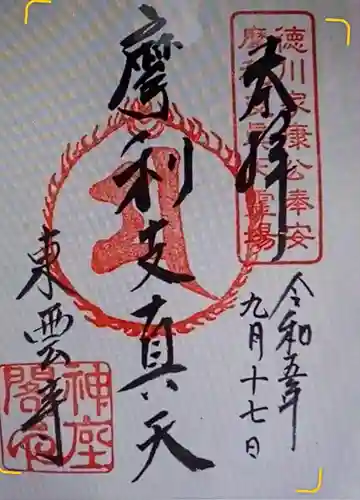 奉拝
徳川家康公奉安
摩利支眞天霊場
令和五年
九月十七日
摩利支眞天
東雲寺
神座
閣